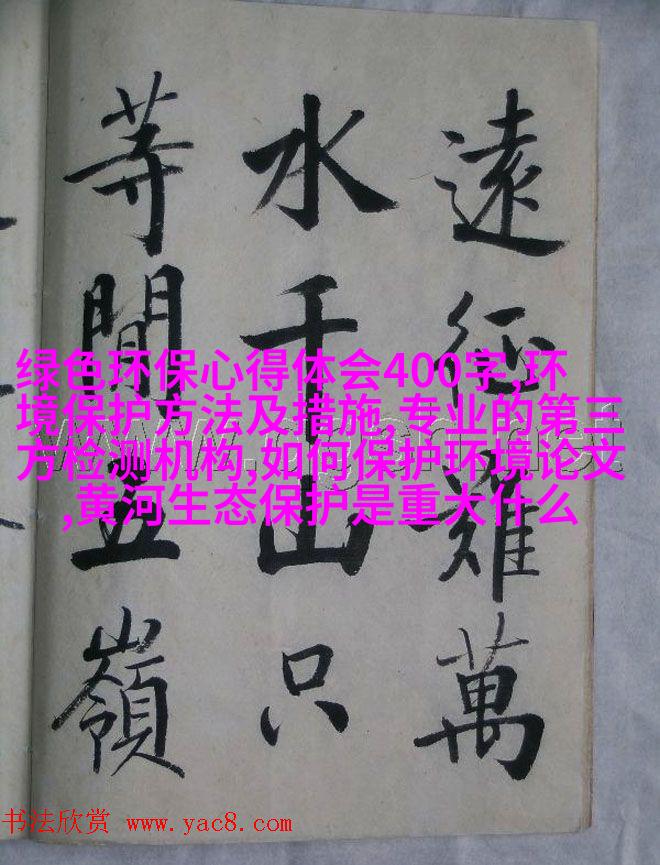 遠征難萬
水千山只
等閒五嶺
绿色环保心得体会400字,环
境保护方法及措施,专业的第三
方检测机构,如何保护环境论文
,黄河生态保护是重大什么
书法欣赏 www.yac8.com